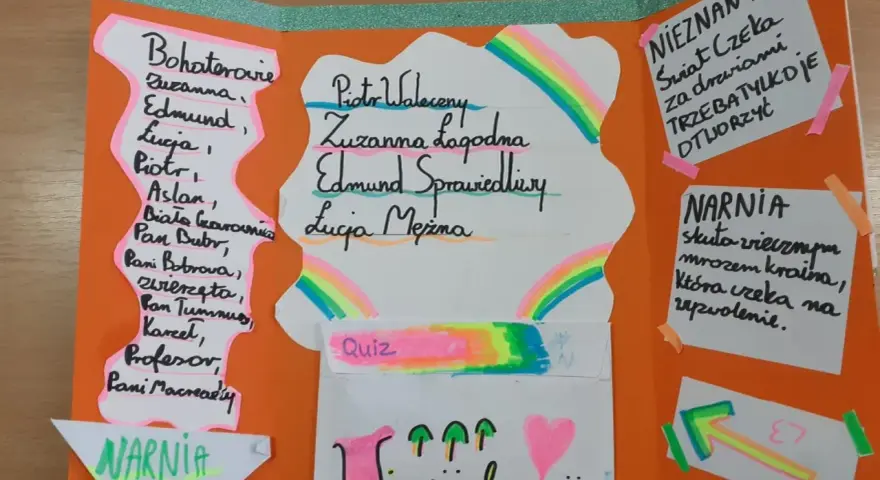 Bohaterowie
Zuzanna,
Edmund,
Łucja,
Piotr,
Aslan,
Biała Czarownica
Pan Bobr,
Pani Bobrowa,
zwierzęta,
Pan Tumnus,
Karzeł,
Profesor,
Pani Macready
NARNIA
Piotr Waleczny
Zuzanna Łagodna
Edmund Sprawiedliwy
Łucja Mężna
Quiz
NIEZNAN
Świat Czeka
za drzwiami
TRZEBA TYLKO JE
OTWORZYĆ
NARNIA
skuta wiecznym
mrozem kraina,
która czeka na
wyzwolenie.